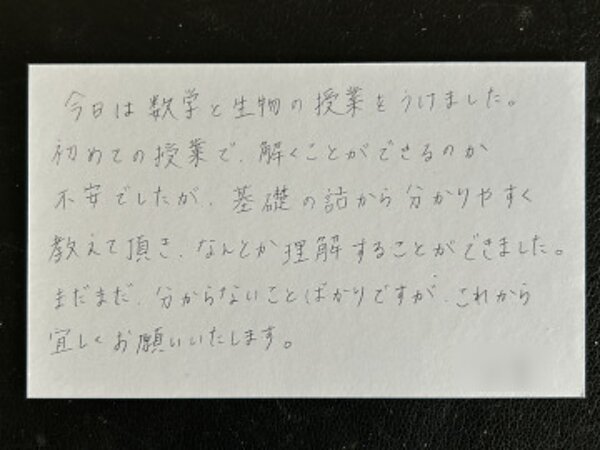 今日は数学と生物の授業をうけました。
初めての授業で、解くことができるのか
不安でしたが、基礎の話から分かりやすく
教えて頂き、なんとか理解することができました。
まだまだ、分からないことばかりですが、これから
宜しくお願いいたします。